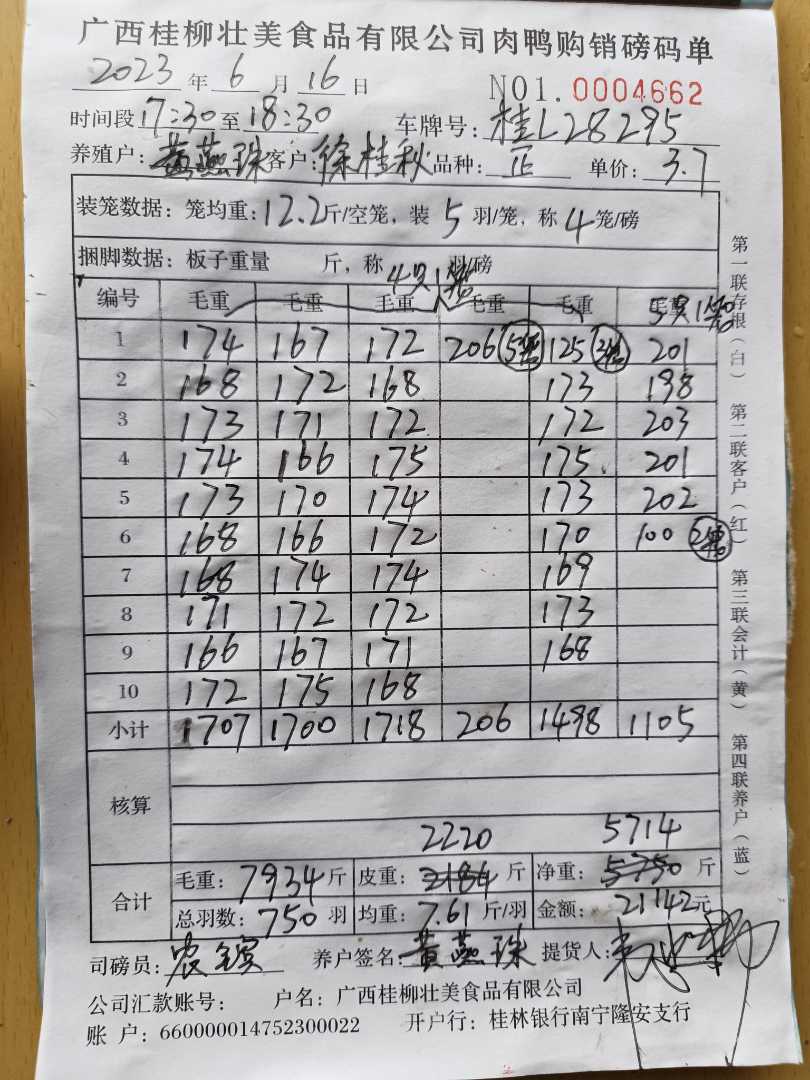 广西桂柳壮美食品有限公司肉鸭购销磅码单
2023 年 6 月 16 日 NO1. 0004662
时间段 17:30 至 18:30 车牌号: 桂L28295
养殖户: 黄燕珠 客户: 徐桂秋 品种: 正 单价: 3.7
装笼数据: 笼均重: 12.2 斤/空笼, 装 5 羽/笼, 称 4 笼/磅
捆脚数据: 板子重量 斤, 称 羽/磅
4只1笼
5只1笼
编号 毛重 毛重 毛重 毛重 毛重 毛重
1 174 167 172 206 5笼 125 3笼 201
2 168 172 168 173 198
3 173 171 172 172 203
4 174 166 175 175 201
5 173 170 174 173 202
6 168 166 172 170 100 2笼
7 168 174 174 169
8 171 172 172 173
9 166 167 171 168
10 172 175 168
小计 1707 1700 1718 206 1498 1105
核算
2220 5714
合计 毛重: 7934 斤 皮重: 2184 斤 净重: 5750 斤
总羽数: 750 羽 均重: 7.61 斤/羽 金额: 21142 元
司磅员: 农 养户签名: 黄燕珠 提货人:
公司汇款账号: 户名: 广西桂柳壮美食品有限公司
账 户: 660000014752300022 开户行: 桂林银行南宁隆安支行
第一联存根(白) 第二联客户(红) 第三联会计(黄) 第四联养户(蓝)